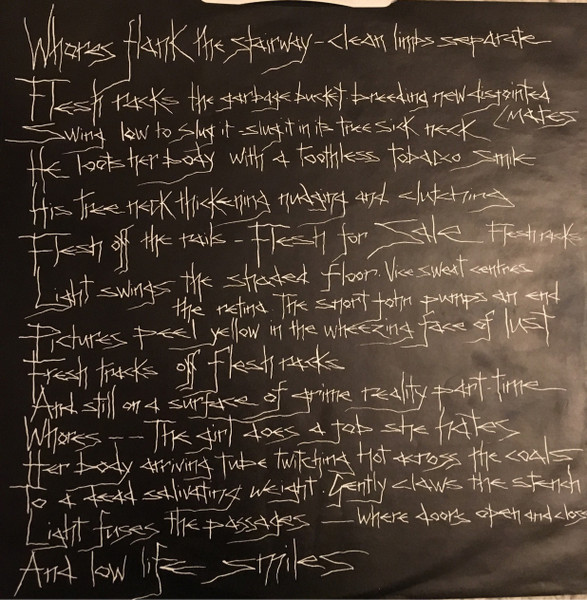 Whores flank the stairway - clean limbs separate
Flesh racks the garbage bucket breeding new disjointed
Mates
Swing low to slug it - slug it in its tree sick neck
He loots her body with a toothless tobacco smile
His tree neck thickening nudging and clutching
Flesh off the rails - Flesh for Sale Flesh racks
Light swings the shaded floor. Vice sweat centres
the retina. The short john pumps an end
Pictures peel yellow in the wheezing face of lust
Fresh tracks off flesh racks
And still on a surface of grime reality part-time
Whores -- The girl does a job she hates
Her body arriving tube twitching Hot across the coals
To a dead salivating weight. Gently claws the stench
Light fuses the passages - where doors open and close
And low life smiles